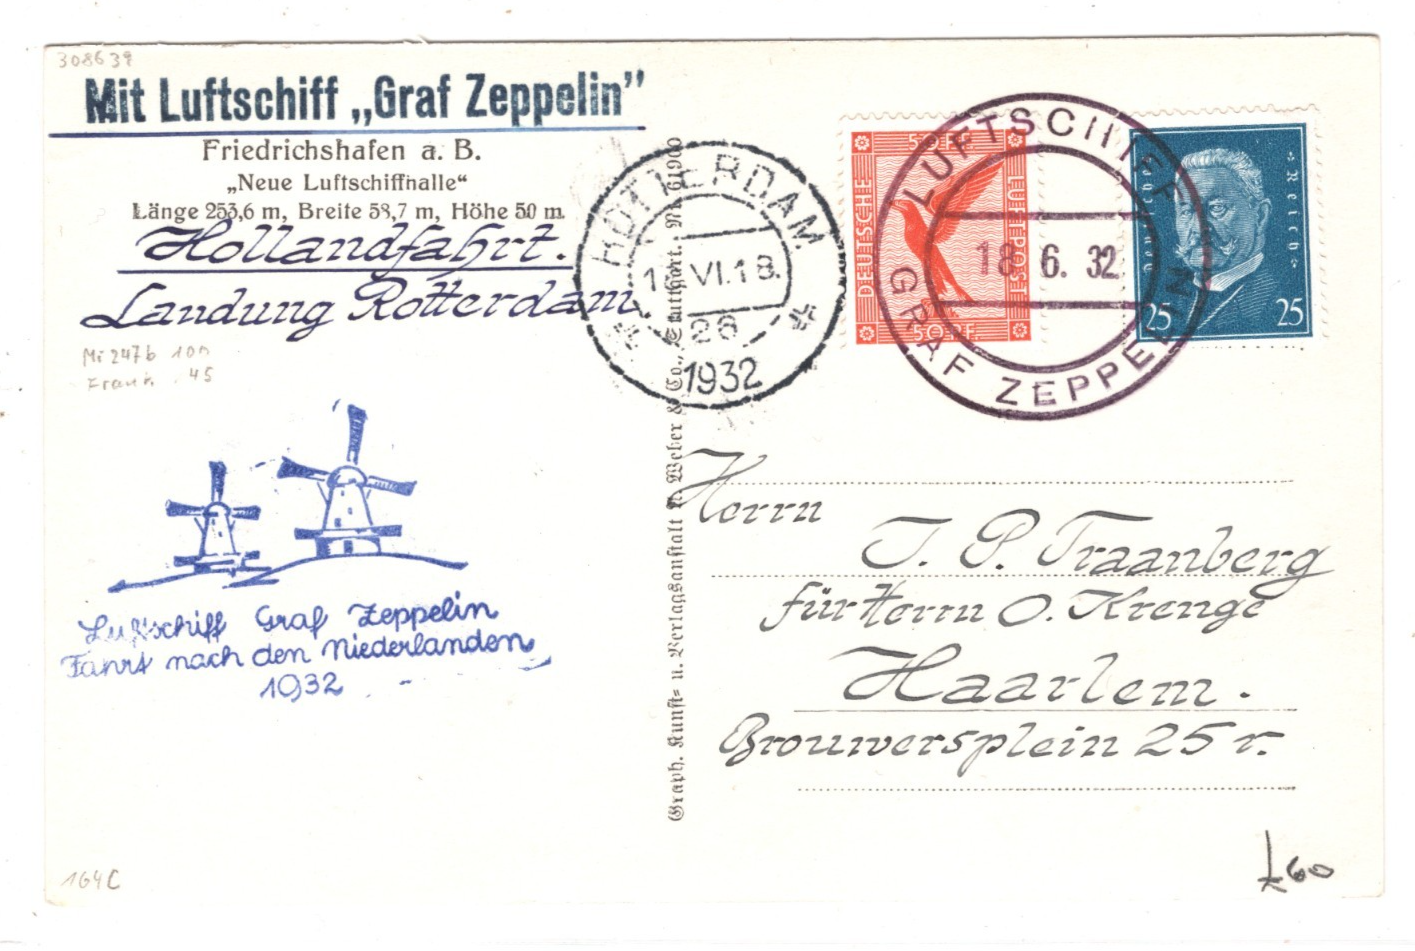 308639
Mit Luftschiff „Graf Zeppelin”
Friedrichshafen a. B.
„Neue Luftschiffhalle“
Länge 253,6 m, Breite 58,7 m, Höhe 50 m.
Hollandfahrt.
Landung Rotterdam
Mi 247b 100
Frank. 45
ROTTERDAM
VI.18.
26
1932
50 PF.
DEUTSCHE
LUFTPOST
50 PF.
LUFTSCHIFF
18. 6. 32
GRAF ZEPPELIN
Deutsches
Reich
25
25
Luftschiff Graf Zeppelin
Fahrt nach den Niederlanden
1932
Graph. Kunst- u. Verlagsanstalt A. Weber & Co., Stuttgart.
Herrn
J. P. Traanberg
für Herrn O. Krenge
Haarlem.
Brouwersplein 25 r.
164C
£60